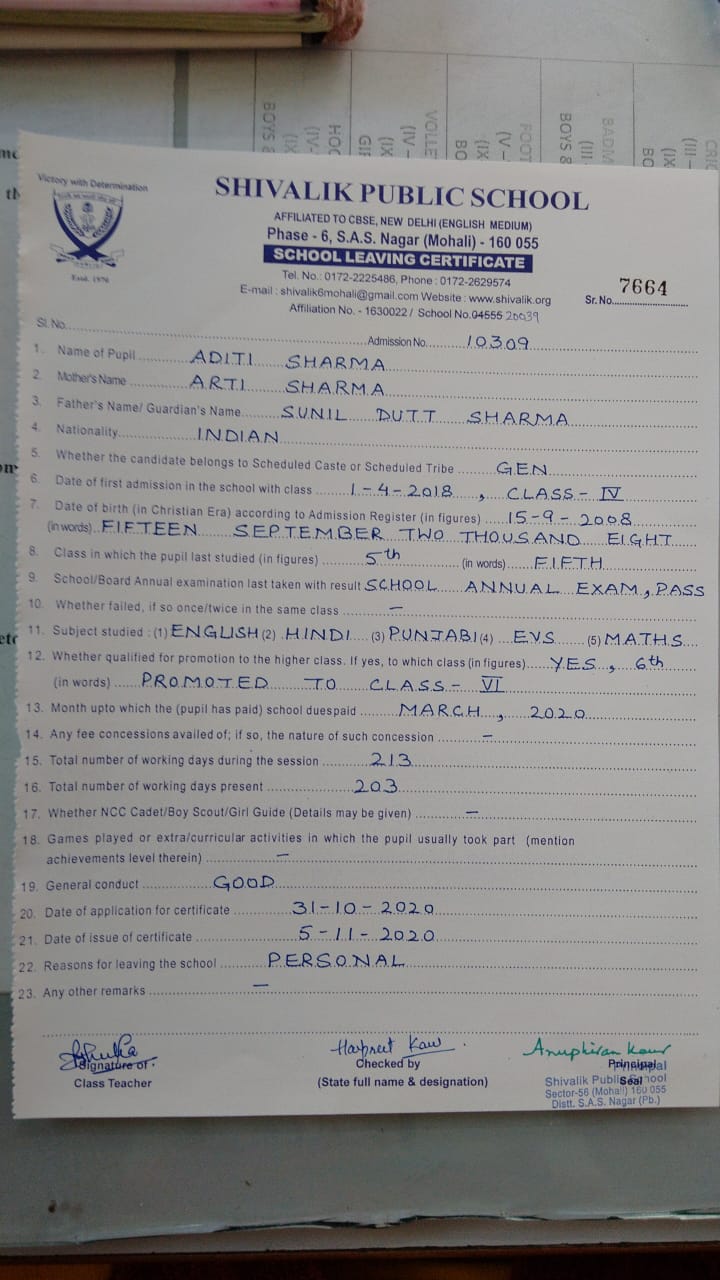 BOYS &
(IX
(IV-
HOC
GIR
(IX
(IV -
VOLLE
BO
(IX
(V -
FOOT
BOYS &
(III -
BADM
BO
(IX
(III -
CRIC
Victory with Determination
SHIVALIK PUBLIC SCHOOL
AFFILIATED TO CBSE, NEW DELHI (ENGLISH MEDIUM)
Phase - 6, S.A.S. Nagar (Mohali) - 160 055
SCHOOL LEAVING CERTIFICATE
Estd. 1976
Tel. No.: 0172-2225486, Phone : 0172-2629574
E-mail : shivalik6mohali@gmail.com Website : www.shivalik.org
Sr. No. 7664
Affiliation No. - 1630022 / School No.04555 20039
Sl. No. Admission No. 10309
1. Name of Pupil ADITI SHARMA
2. Mother's Name ARTI SHARMA
3. Father's Name/ Guardian's Name SUNIL DUTT SHARMA
4. Nationality INDIAN
5. Whether the candidate belongs to Scheduled Caste or Scheduled Tribe GEN
6. Date of first admission in the school with class 1-4-2018, CLASS-IV
7. Date of birth (in Christian Era) according to Admission Register (in figures) 15-9-2008
(in words) FIFTEEN SEPTEMBER TWO THOUSAND EIGHT
8. Class in which the pupil last studied (in figures) 5th (in words) FIFTH
9. School/Board Annual examination last taken with result SCHOOL ANNUAL EXAM, PASS
10. Whether failed, if so once/twice in the same class —
11. Subject studied : (1) ENGLISH (2) HINDI (3) PUNJABI (4) EVS (5) MATHS
12. Whether qualified for promotion to the higher class. If yes, to which class (in figures) YES, 6th
(in words) PROMOTED TO CLASS-VI
13. Month upto which the (pupil has paid) school duespaid MARCH, 2020
14. Any fee concessions availed of; if so, the nature of such concession —
15. Total number of working days during the session 213
16. Total number of working days present 203
17. Whether NCC Cadet/Boy Scout/Girl Guide (Details may be given) —
18. Games played or extra/curricular activities in which the pupil usually took part (mention
achievements level therein) —
19. General conduct GOOD
20. Date of application for certificate 31-10-2020
21. Date of issue of certificate 5-11-2020
22. Reasons for leaving the school PERSONAL
23. Any other remarks —
Harpreet Kaur Anupkiran Kaur
Signature of Checked by Principal
Principal
Class Teacher (State full name & designation) Seal
Shivalik Public School
Sector-56 (Mohali) 160 055
Distt. S.A.S. Nagar (Pb.)